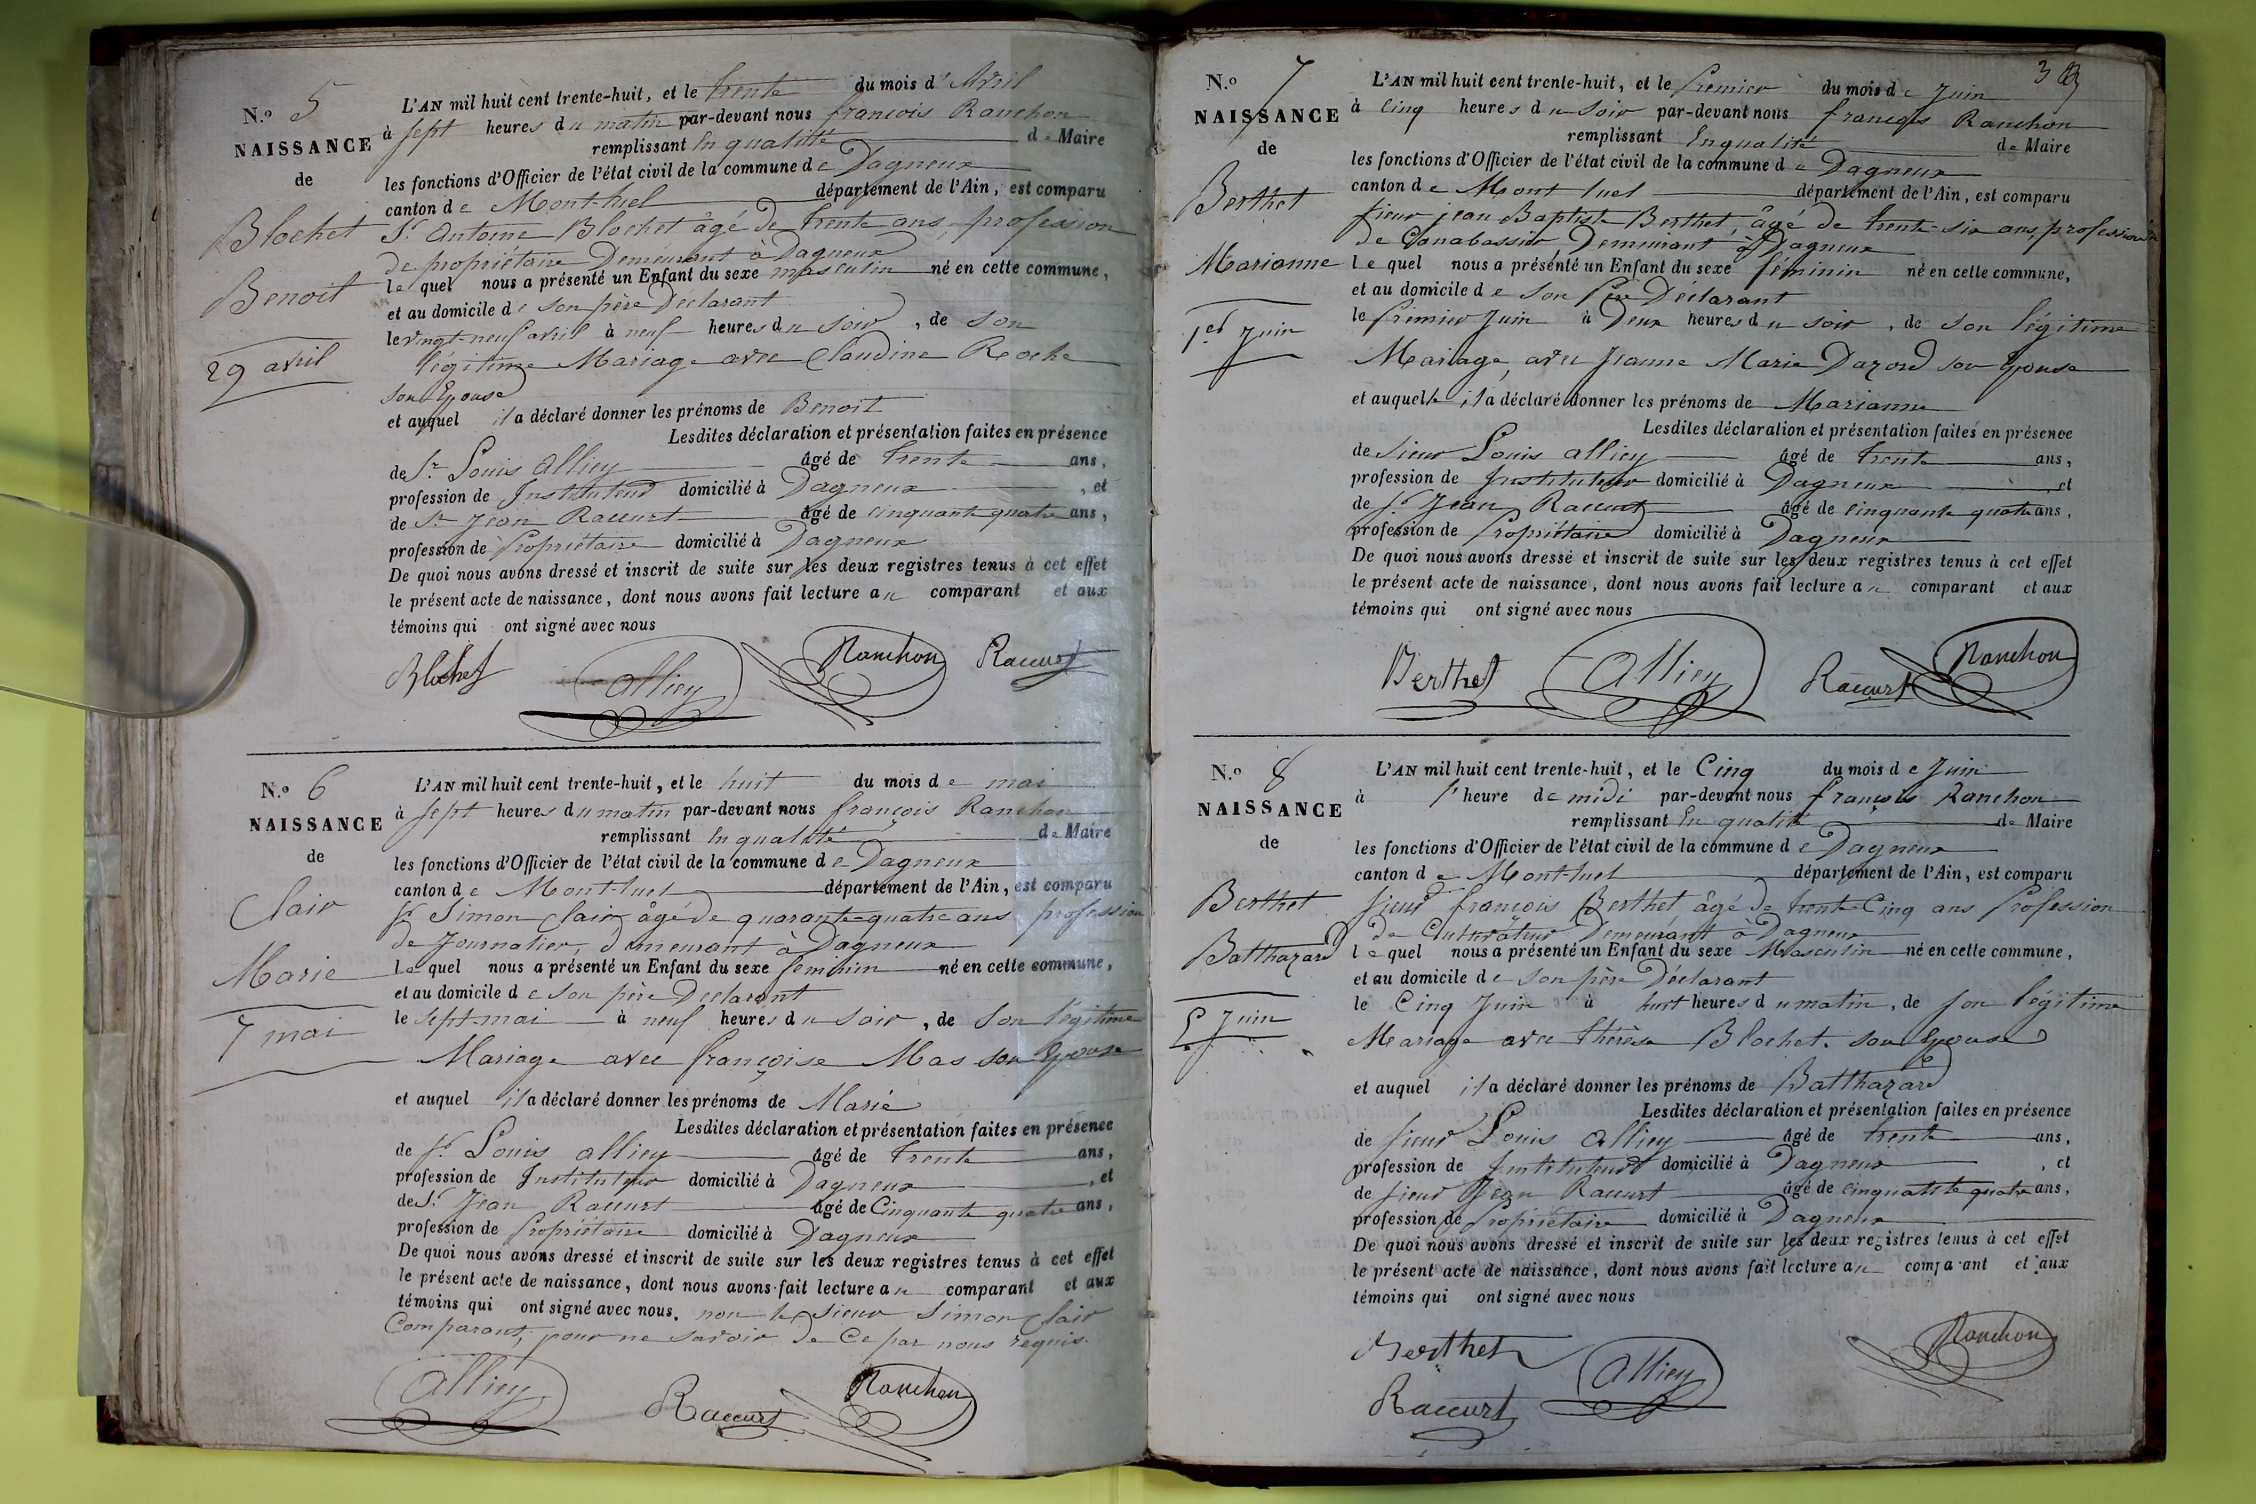 N.o 5
NAISSANCE
de
Blochet
Benoit
29 avril
L'AN mil huit cent trente-huit, et le trente du mois d'Avril
à sept heures du matin par-devant nous françois Ranchon
remplissant En qualité de Maire
les fonctions d'Officier de l'état civil de la commune de Dagneux
canton de Mont-luel département de l'Ain, est comparu
Sr. Antoine Blochet âgé de trente ans, profession
de propriétaire Demeurant à Dagneux
Lequel nous a présenté un Enfant du sexe masculin né en cette commune,
et au domicile de son père Déclarant
le vingt-neuf avril à neuf heures du soir, de son
légitime Mariage avec Claudine Roche
son Epouse
et auquel il a déclaré donner les prénoms de Benoit
Lesdites déclaration et présentation faites en présence
de Sr. Louis alliey âgé de trente ans,
profession de Instituteur domicilié à Dagneux, et
de Sr. Jean Raccurt âgé de cinquante quatre ans,
profession de Propriétaire domicilié à Dagneux
De quoi nous avons dressé et inscrit de suite sur les deux registres tenus à cet effet
le présent acte de naissance, dont nous avons fait lecture au comparant et aux
témoins qui ont signé avec nous
Blochet Alliey Ranchon Raccurt
N.o 6
NAISSANCE
de
Clair
Marie
7 mai
L'AN mil huit cent trente-huit, et le huit du mois de mai
à sept heures du matin par-devant nous françois Ranchon
remplissant En qualité de Maire
les fonctions d'Officier de l'état civil de la commune de Dagneux
canton de Mont-luel département de l'Ain, est comparu
Sr. Simon Clair âgé de quarante-quatre ans, profession
de Journalier, demeurant à Dagneux
Lequel nous a présenté un Enfant du sexe feminin né en cette commune,
et au domicile de son père Déclarant
le sept mai à neuf heures du soir, de Son légitime
Mariage avec françoise Mas son Epouse
et auquel il a déclaré donner les prénoms de Marie
Lesdites déclaration et présentation faites en présence
de Sr. Louis alliey âgé de trente ans,
profession de Instituteur domicilié à Dagneux, et
de Sr. Jean Raccurt âgé de Cinquante quatre ans,
profession de Propriétaire domicilié à Dagneux
De quoi nous avons dressé et inscrit de suite sur les deux registres tenus à cet effet
le présent acte de naissance, dont nous avons fait lecture au comparant et aux
témoins qui ont signé avec nous. non le sieur Simon Clair
Comparant, pour ne savoir de Ce par nous requis.
Alliey Raccurt Ranchon
3
N.o 7
NAISSANCE
de
Berthet
Marianne
1er Juin
L'AN mil huit cent trente-huit, et le Premier du mois de Juin
à Cinq heures du soir par-devant nous françois Ranchon
remplissant En qualité de Maire
les fonctions d'Officier de l'état civil de la commune de Dagneux
canton de Mont luel département de l'Ain, est comparu
sieur jean Baptiste Berthet, âgé de trente-six ans, profession
de Demeurant à Dagneux
Lequel nous a présenté un Enfant du sexe féminin né en cette commune,
et au domicile de son Père Déclarant
le Premier Juin à Deux heures du soir, de son légitime
Mariage, avec Jeanne Marie Dazord son Epouse
et auquelle il a déclaré donner les prénoms de Marianne
Lesdites déclaration et présentation faites en présence
de sieur Louis alliey âgé de trente ans,
profession de Instituteur domicilié à Dagneux, et
de Sr. Jean Raccurt âgé de cinquante quatre ans,
profession de Propriétaire domicilié à Dagneux
De quoi nous avons dressé et inscrit de suite sur les deux registres tenus à cet effet
le présent acte de naissance, dont nous avons fait lecture au comparant et aux
témoins qui ont signé avec nous
Berthet Alliey Raccurt Ranchon
N.o 8
NAISSANCE
de
Berthet
Balthazard
5 Juin
L'AN mil huit cent trente-huit, et le Cinq du mois de Juin
à l'heure de midi par-devant nous françois Ranchon
remplissant En qualité de Maire
les fonctions d'Officier de l'état civil de la commune de Dagneux
canton de Mont-luel département de l'Ain, est comparu
sieur françois Berthet, âgé de trente Cinq ans Profession
de Cultivateur Demeurant à Dagneux
lequel nous a présenté un Enfant du sexe Masculin né en cette commune,
et au domicile de son père Déclarant
le Cinq Juin à huit heures du matin, de son légitime
Mariage avec thérèse Blochet. son Epouse
et auquel il a déclaré donner les prénoms de Balthazard
Lesdites déclaration et présentation faites en présence
de sieur Louis Alliey âgé de trente ans,
profession de Instituteur domicilié à Dagneux, et
de sieur Jean Raccurt âgé de cinquante quatre ans,
profession de Propriétaire domicilié à Dagneux
De quoi nous avons dressé et inscrit de suite sur les deux registres tenus à cet effet
le présent acte de naissance, dont nous avons fait lecture au comparant et aux
témoins qui ont signé avec nous
Berthet Alliey Ranchon
Raccurt